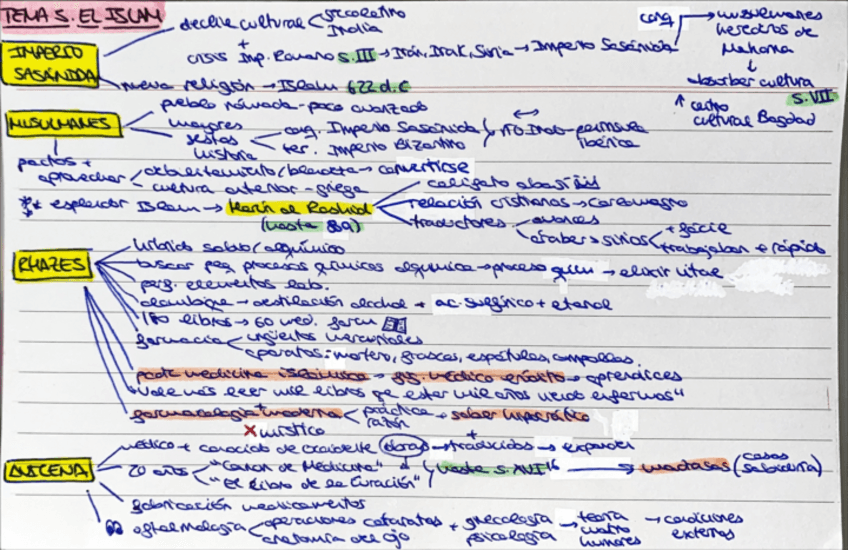 TEMA 5. EL ISLAM
IMPERIO SASÁNIDA
declive cultural < grecolatino
India
+
crisis Imp. Romano s.III → Irán, Irak, Siria → Imperio Sasánida
conq.
→ musulmanes
herederos de
Mahoma
↓
absorber cultura
s.VII
↑ centro
cultural Bagdad
nueva religión → Islam 622 d.C
MUSULMANES
pueblo nómada - poco avanzado
mayores
gestas
historia
conq. Imperio Sasánida
ter. Imperio Bizantino
río Indo - península
ibérica
pactos +
aprovechar
convertirse
cultura anterior - griega
** esplendor Islam → Harún al Rashid
(hasta 809)
califato abasí
relación cristianos → Carlomagno
traductores
árabes → sirios
+ fácil
trabajaban + rápido
RHAZES
híbrido sabio/alquímico
buscar peq. procesos químicos alquimia → proceso quím → elixir vitae
elementos lab.
alambique → destilación alcohol + ac. sulfúrico + etanol
180 libros → 60 med. farm
farmacia
ungüentos mercuriales
aparatos: mortero, frascos, espátulas, ampollas
padre medicina islámica → gg. médico erudito → aprendices
"Vale más leer mil libros qe estar mil años viendo enfermos"
farmacología moderna
práctica
razón
+ saber hipocrático
X místico
AVICENA
médico + conocido de occidente
obras → traducidas → expandir
20 años
"Canon de Medicina"
"El Libro de la Curación"
hasta s.XVI
→ madrasas (casas
sabiduría)
fabricación medicamentos
oftalmología
operaciones cataratas
anatomía del ojo
+ ginecología
psicología
→ teoría
cuatro
humores
→ condiciones
externas